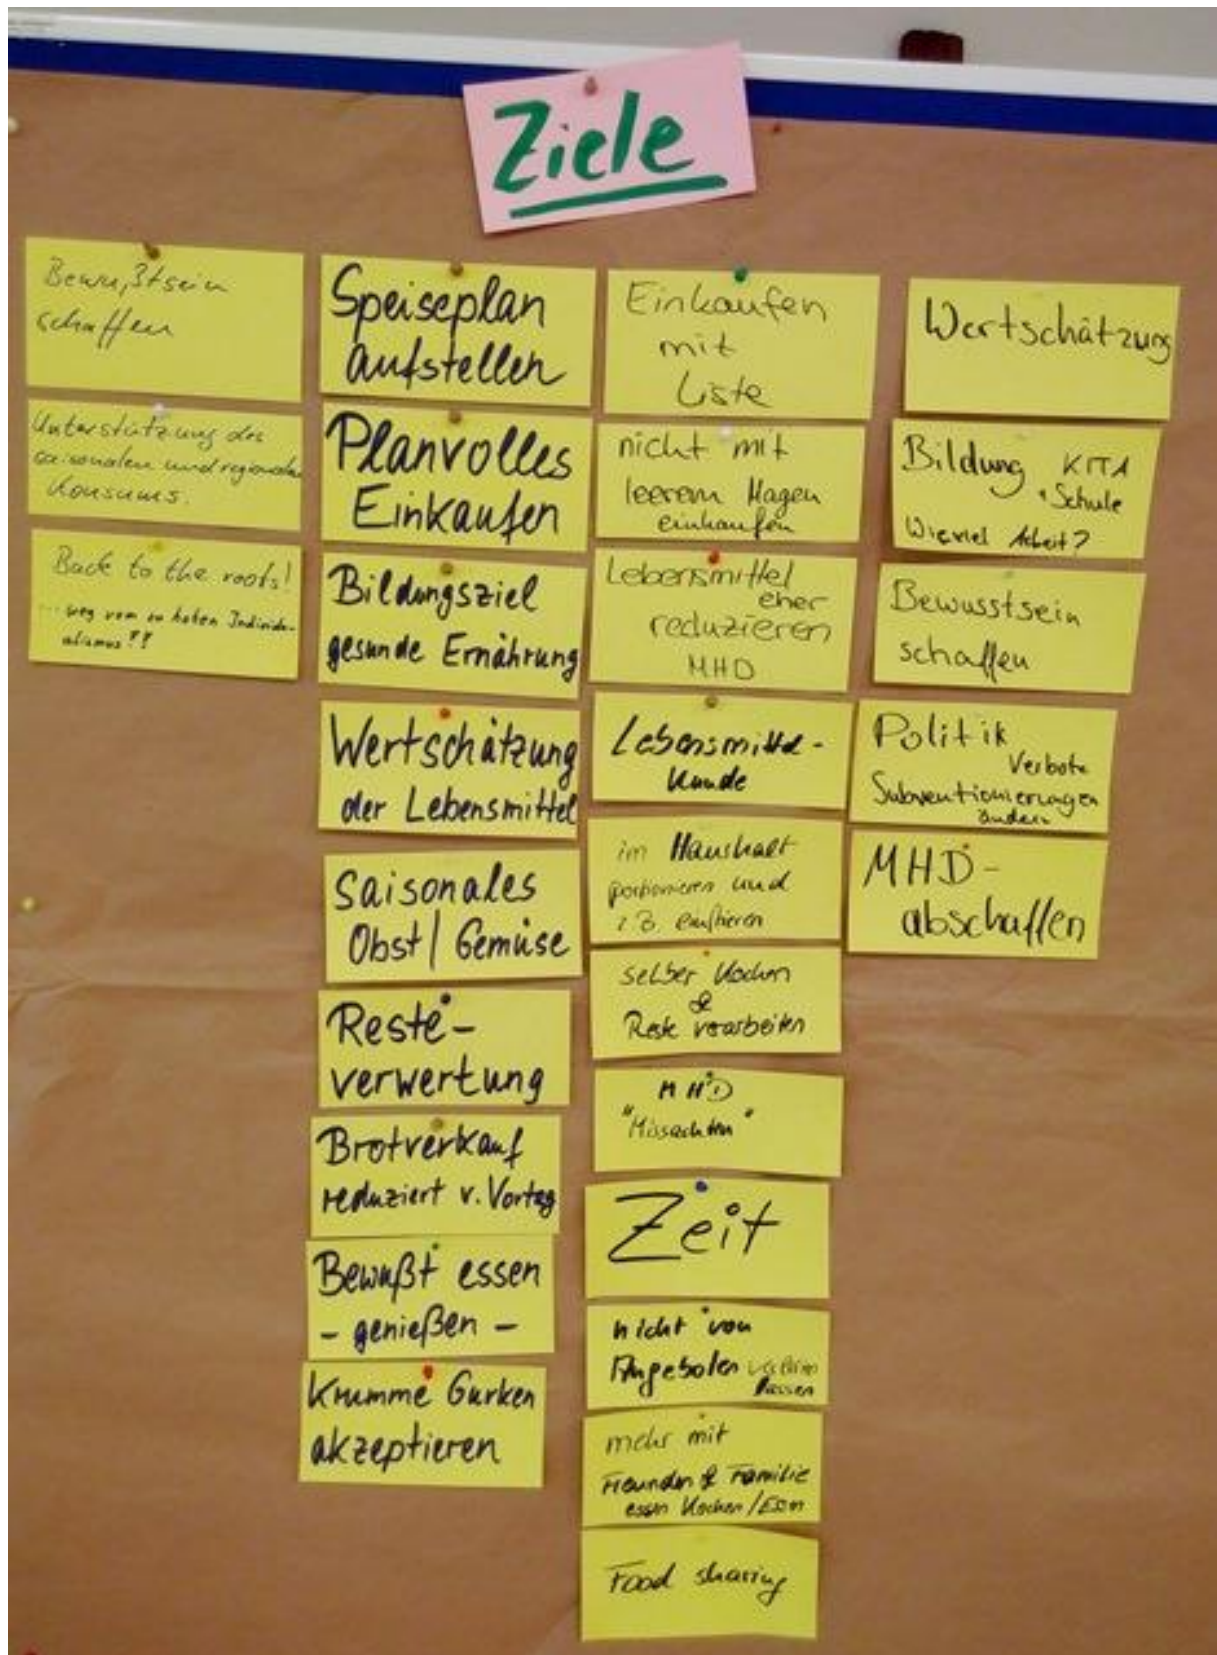 Ziele
Bewußtsein
schaffen
Unterstützung des
saisonalen und regionalen
Konsums.
Back to the roots!
... weg vom zu hohen Individu-
alismus!!
Speiseplan
aufstellen
Planvolles
Einkaufen
Bildungsziel
gesunde Ernährung
Wertschätzung
der Lebensmittel
Saisonales
Obst / Gemüse
Reste-
verwertung
Brotverkauf
reduziert v. Vortag
Bewußt essen
- genießen -
Krumme Gurken
akzeptieren
Einkaufen
mit
Liste
nicht mit
leerem Magen
einkaufen
Lebensmittel
eher
reduzieren
MHD
Lebensmittel-
kunde
im Haushalt
portionieren und
z.B. einfrieren
selber Kochen
&
Reste verarbeiten
MHD
"Missachten"
Zeit
nicht von
Angeboten verführen
lassen
mehr mit
Freunden & Familie
essen Kochen/Essen
Food sharing
Wertschätzung
Bildung KITA
+ Schule
Wieviel Arbeit?
Bewusstsein
schaffen
Politik
Verbote
Subventionierungen
ändern
MHD-
abschaffen